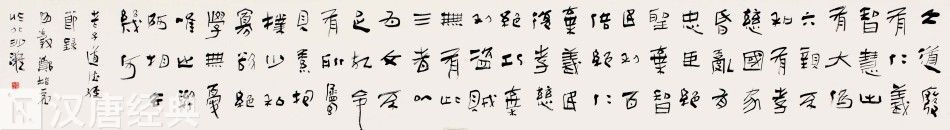 大道廢
有仁義
智慧出
有大偽
六親不
和有孝
慈國家
昏亂有
忠臣絕
聖棄智
民利百
倍絕仁
棄義民
復孝慈
絕巧棄
利盜賊
無有此
三者以
為文不
足故令
有所屬
見素抱
樸少私
寡欲絕
學無憂
唯之與
阿相去
幾何
老子道德經
節錄
於北沙灘
汉唐经典